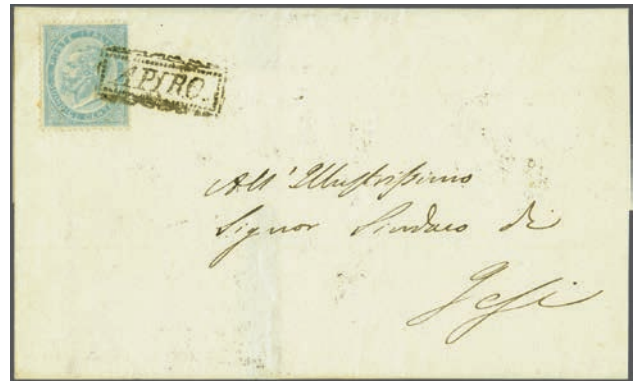 POSTE ITALI
APIRO.
All' Illustrissimo
Signor Sindaco di
Jesi